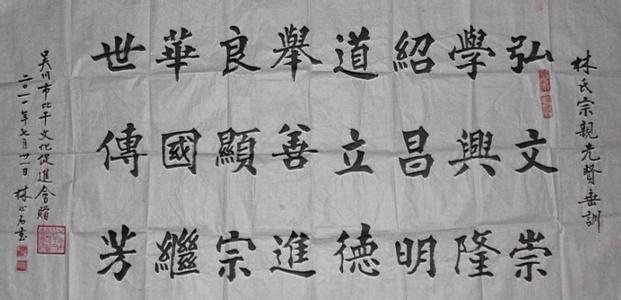 林氏宗親先賢垂訓
弘文崇
學興隆
紹昌明
道立德
舉善進
良顯宗
華國繼
世傳芳
吴川市比干文化促進會贈
二〇一一年七月廿一日 林書